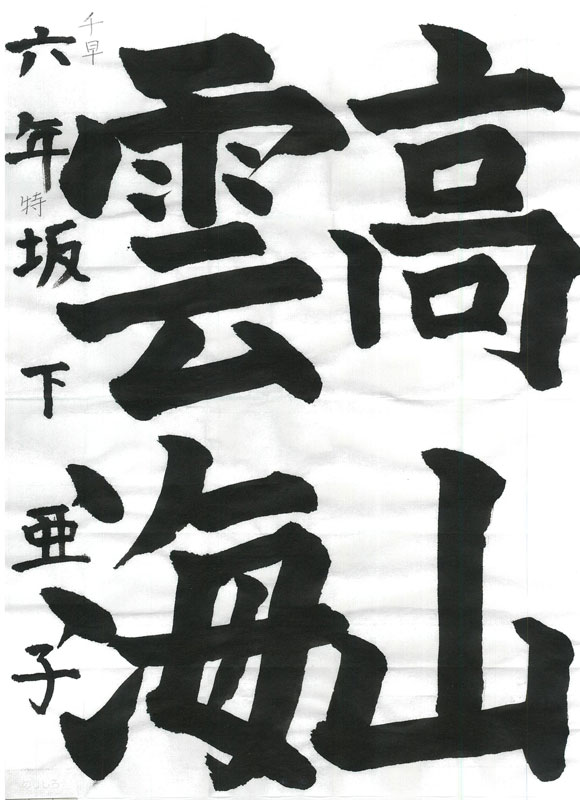 高山
雲海
六年坂下亜子
千早
特